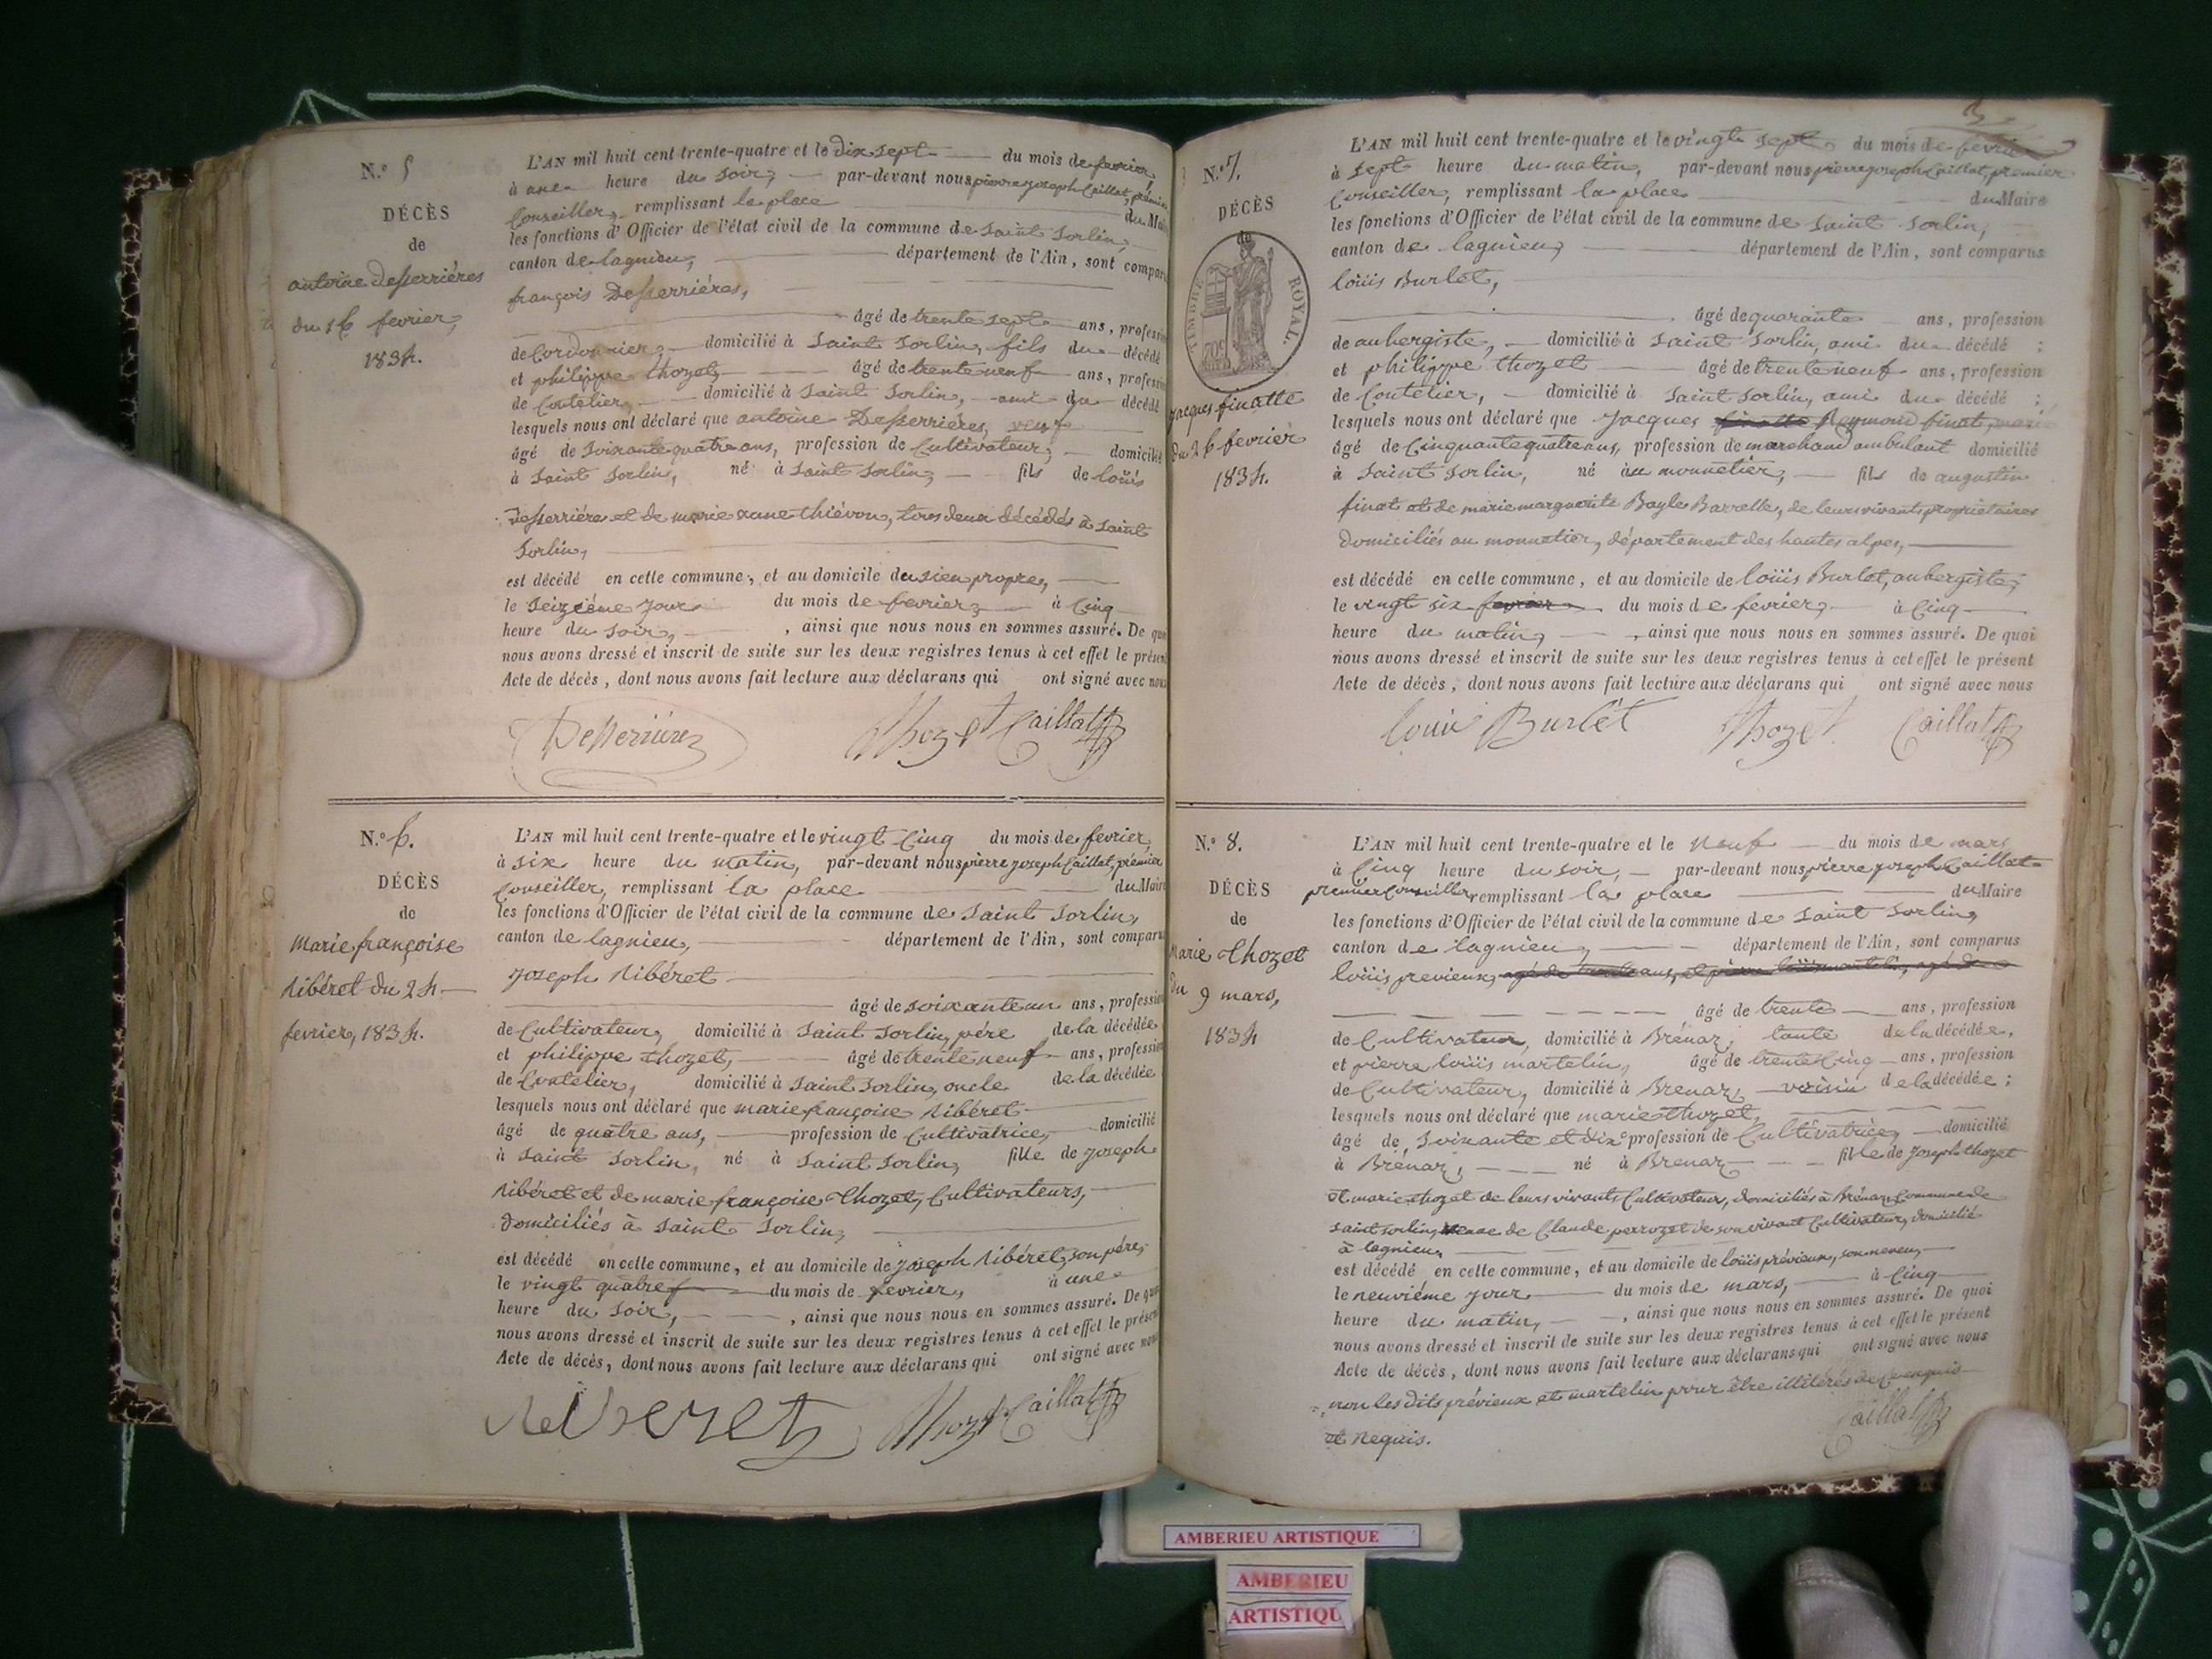 N.º 5
DÉCÈS
de
antoine Desserriéres
du 16 fevrier,
1834.
L'AN mil huit cent trente-quatre et le dix sept du mois de fevrier,
à une heure du soir, par-devant nous pierre joseph Caillat, premier
Conseiller, remplissant la place du Mai
les fonctions d'Officier de l'état civil de la commune de Saint Sorlin
canton de lagnieu, département de l'Ain, sont compar
françois Desserriéres,
âgé de trente sept ans, profession
de Cordonnier, domicilié à Saint Sorlin, fils du décédé
et philippe thozet, âgé de trente neuf ans, profession
de Coutelier, domicilié à Saint Sorlin, ami du décédé
lesquels nous ont déclaré que antoine Desserriéres, veuf
âgé de soixante quatre ans, profession de Cultivateur, domicilié
à Saint Sorlin, né à Saint Sorlin, fils de loüis
Desserriére et de marie anne thiévon, tous deux décédés à Saint
Sorlin,
est décédé en cette commune, et au domicile du sien propre,
le Seiziéme jour du mois de fevrier, à Cinq
heure du soir, , ainsi que nous nous en sommes assuré. De quo
nous avons dressé et inscrit de suite sur les deux registres tenus à cet effet le présent
Acte de décès, dont nous avons fait lecture aux déclarans qui ont signé avec nous
Desserriérez Thozet Caillat
N.º 6.
DÉCÈS
de
Marie françoise
Ribéret du 24
fevrier, 1834.
L'AN mil huit cent trente-quatre et le vingt Cinq du mois de fevrier,
à six heure du matin, par-devant nous pierre joseph Caillat, premier
Conseiller, remplissant la place du Maire
les fonctions d'Officier de l'état civil de la commune de Saint Sorlin,
canton de lagnieu, département de l'Ain, sont comparu
joseph Ribéret
âgé de soixante un ans, profession
de Cultivateur, domicilié à Saint Sorlin, pére de la décédée
et philippe thozet, âgé de trente neuf ans, profession
de Coutelier, domicilié à Saint Sorlin, oncle de la décédée
lesquels nous ont déclaré que marie françoise Ribéret
âgé de quatre ans, profession de Cultivatrice, domicilié
à Saint Sorlin, né à Saint Sorlin, fille de joseph
Ribéret et de marie françoise Thozet, Cultivateurs,
domiciliés à Saint Sorlin,
est décédé en cette commune, et au domicile de joseph Ribéret, son pére,
le vingt quatre du mois de fevrier, à une
heure du soir, , ainsi que nous nous en sommes assuré. De quo
nous avons dressé et inscrit de suite sur les deux registres tenus à cet effet le présen
Acte de décès, dont nous avons fait lecture aux déclarans qui ont signé avec nous
Riberet Thozet Caillat
N.º 7.
DÉCÈS
de
TIMBRE ROYAL.
70c
jacques finatte
du 26 fevrier
1834.
L'AN mil huit cent trente-quatre et le vingt sept du mois de fevrier
à sept heure du matin, par-devant nous pierre joseph Caillat, premier
Conseiller, remplissant la place du Maire
les fonctions d'Officier de l'état civil de la commune de Saint Sorlin,
canton de lagnieu, département de l'Ain, sont comparus
loüis Burlet,
âgé de quarante ans, profession
de aubergiste, domicilié à Saint Sorlin, ami du décédé ;
et philippe thozet âgé de trente neuf ans, profession
de Coutelier, domicilié à Saint Sorlin, ami du décédé ;
lesquels nous ont déclaré que jacques finatte Reymond finat,
âgé de Cinquante quatre ans, profession de marchand ambulant domicilié
à Saint Sorlin, né au monnetier, fils de augustin
finat et de marie marguerite Bayle Barrelle, de leurs vivants propriétaires
domiciliés au monnetier, département des hautes alpes,
est décédé en cette commune, et au domicile de loüis Burlet, aubergiste,
le vingt six fevrier du mois de fevrier, à Cinq
heure du matin, , ainsi que nous nous en sommes assuré. De quoi
nous avons dressé et inscrit de suite sur les deux registres tenus à cet effet le présent
Acte de décès, dont nous avons fait lecture aux déclarans qui ont signé avec nous
louis Burlet Thozet Caillat
N.º 8.
DÉCÈS
de
Marie Thozet
du 9 mars,
1834
L'AN mil huit cent trente-quatre et le neuf du mois de mars
à Cinq heure du soir, par-devant nous pierre joseph Caillat
premier Conseiller remplissant la place du Maire
les fonctions d'Officier de l'état civil de la commune de Saint Sorlin,
canton de lagnieu, département de l'Ain, sont comparus
loüis previeux, agé de trente ans, et pierre loüis martelin, agé de
âgé de trente ans, profession
de Cultivateur, domicilié à Brénaz, tante de la décédée,
et pierre loüis martelin, âgé de trente Cinq ans, profession
de Cultivateur, domicilié à Brenaz, voisin de la décédée ;
lesquels nous ont déclaré que marie thozet,
âgé de soixante et dix profession de Cultivatrice, domicilié
à Brénaz, né à Brenaz fille de joseph thozet
et marie thozet de leurs vivants Cultivateurs, domiciliés à Brénaz Commune de
Saint Sorlin, veuve de Claude perrozet de son vivant Cultivateur, domicilié
à lagnieu,
est décédé en cette commune, et au domicile de loüis prévieux, son neveu,
le neuviéme jour du mois de mars, à Cinq
heure du matin, , ainsi que nous nous en sommes assuré. De quoi
nous avons dressé et inscrit de suite sur les deux registres tenus à cet effet le présent
Acte de décès, dont nous avons fait lecture aux déclarans qui ont signé avec nous
non les dits prévieux et martelin pour être illitérés de Ce enquis
et Requis. Caillat
AMBERIEU ARTISTIQUE
AMBERIEU
ARTISTIQU